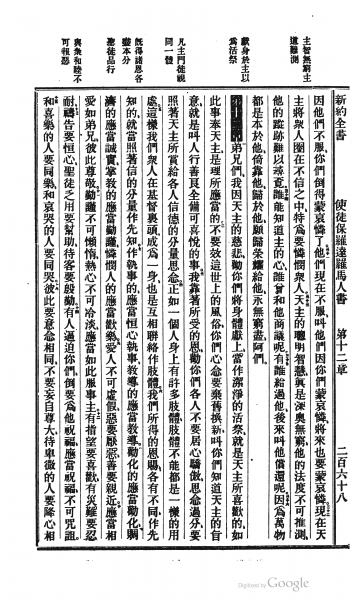 新約全書
使徒保羅達羅馬人書
第十二章
二百六十八
主智無窮主道難測
獻身於主以爲活祭
凡主門徒視同一體
旣得諸恩各盡本分
聖徒品行
與衆和睦不可報讐
因他們不服、你們倒得蒙哀憐了、他們現在不服、叫他們因你們蒙哀憐、將來也要蒙哀憐、現在天
主將衆人圈在不信之中、特爲要憐憫衆人、天主的聰明智慧、眞是深奥無窮、他的法度不可推測、
他的蹤跡難以尋覓、誰能知道主的心、誰曾和他商議呢、有誰給過他、後來叫他償還呢、因爲萬物
都是本於他、倚靠他、歸於他、願歸榮耀給他、永無窮盡、阿們、
第十二章 弟兄們、我因天主的慈悲、勸你們將身體獻上、當作潔淨的活祭、就是天主所喜歡的、如
此事奉天主、是理所應當的、不要效這世上的風俗、你們心意要棄舊換新、叫你們知道天主的旨
意、就是叫人行善良全備可喜悅的事、我靠著所受的恩、勸你們各人不要居心驕傲、思念過分、要
照著天主所賞給各人信德的分量思念、正如一個人身上有許多肢體、肢體不能都是一樣的用
處、這樣我們衆人在基督裏頭成爲一身、也是互相聯絡作肢體、我們所得的恩賜、各有不同、作先
知的、就當照著信的分量作先知、作執事的、應當恒心執事、敎導的、應當敎導、勸化的、應當勸化、賙
濟的、應當誠實、掌敎的、應當勸職、憐憫人的、應當歡樂、愛人不可虛假、惡要厭惡、善要親近、應當相
愛如弟兄、彼此尊敬、勤職不可懶惰、熱心不可冷淡、應當如此服事主、有指望要喜歡、有災難要忍
耐、禱告要恒心、聖徒乏用要幫助、待客要殷勤、有人逼迫你們、倒要爲他祝福、應當祝福、不可咒詛、
和喜樂的人要同樂、和哀哭的人要同哭、彼此要意念相同、不要妄自尊大、待卑微的人要降心相
Digitized by Google